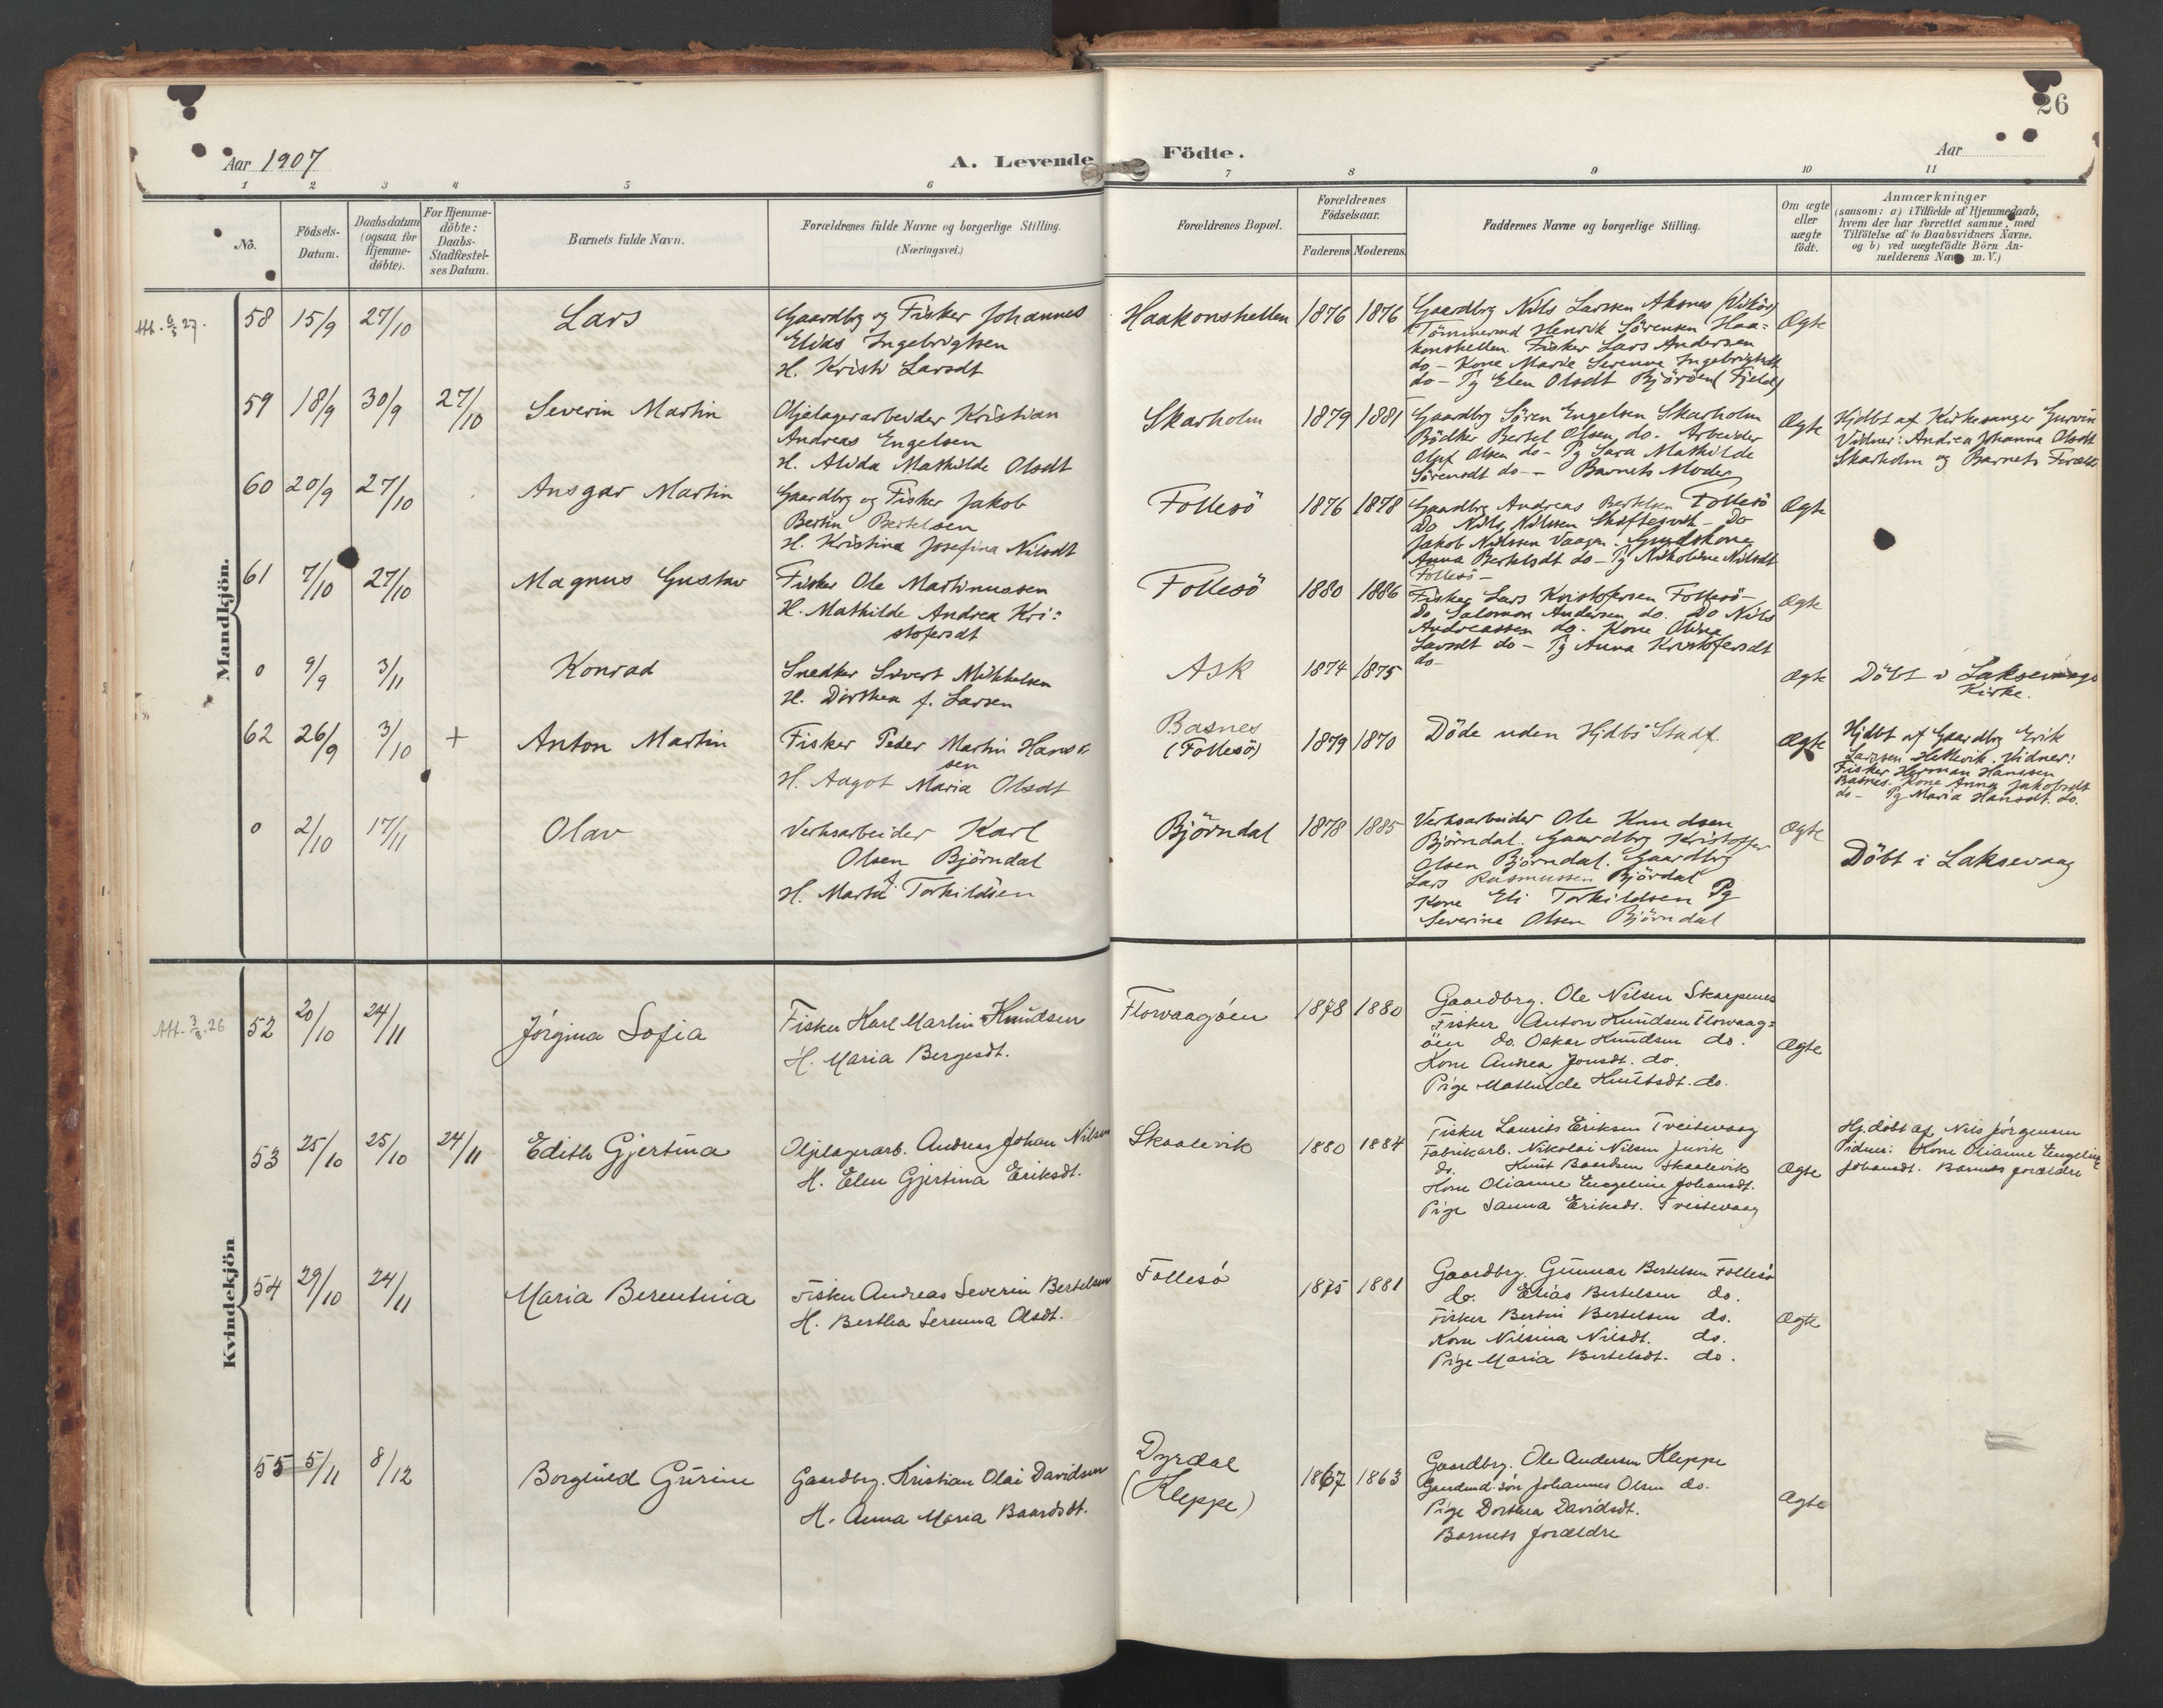 26
Aar 1907
A. Levende Födte.
Aar
1 2 3 4 5 6 7 8 9 10 11
No.
Födsels-Datum.
Daabsdatum (ogsaa for Hjemme-döbte).
For Hjemme-döbte: Daabs-Stadfæstel-ses Datum.
Barnets fulde Navn.
Forældrenes fulde Navne og borgerlige Stilling.
(Næringsvei.)
Forældrenes Bopæl.
Forældrenes Födselsaar.
Faderens Moderens
Faddernes Navne og borgerlige Stilling.
Om ægte eller uægte födt.
Anmærkninger
(saasom: a) i Tilfælde af Hjemmedaab,
hvem der har forrettet samme, med
Tilföielse af to Daabsvidners Navne,
og b) ved uægtefödte Börn An-
melderens Navn m. V.)
Mandkjön.
58 15/9 27/10
Lars
Gaardbrg og Fisker Johannes
Elias Ingebrigtsen
H. Kristi Larsdt
Haakonshellen
1876 1876
Gaardbrg Nils Larssen Aksnes
Tömmermd Henrik Sörensen Haa=
konshellen. Fisker Lars Andersen
do - Kone Marie Serenne Ingebrigtsdt
do - Pg Elen Olsdt Björöen (Fjeld)
Ægte
59 18/9 30/9 27/10
Severin Martin
Oljelagerarbeider Kristian
Andreas Engelsen
H. Alida Mathilde Olsdt
Skarholm
1879 1881
Gaardbrg Sören Engelsen Skarholm
Bödker Bertel Olsen do. Arbeider
Oluf Olsen do - Pg Sara Mathilde
Sörensdt do - Barnets Moder
Ægte
Hjdbt af Kirkesanger
Vidner: Andrea Johanna Olsdt
Skarholm og Barnets Foræld.
60 20/9 27/10
Ansgar Martin
Gaardbrg og Fisker Jakob
Bertin Bertelsen
H. Kristina Josefina Nilsdt
Follesö
1876 1878
Gaardbrg Andreas Bertelsen Follesö
Do Nils Nilssen Skiftesvik - Do
Jakob Nilssen Vaagen. Gaardskone
Anna Bertelsdt do - Pg Nikoline Nilsdt
Follesö -
Ægte
61 7/10 27/10
Magnus Gustav
Fisker Ole Martinussen
H. Mathilde Andrea Kri=
stofersdt
Follesö
1880 1886
Fisker Lars Kristofersen Follesö -
Do Salomon Andersen do. Do Nils
Andreassen do. Kone Olina
Larsdt do - Pg Anna Kristofersdt
do -
Ægte
0 9/9 3/11
Konrad
Snedker Sivert Mikkelsen
H. Dorthea f. Larsen
Ask
1874 1875
Ægte
Döbt i Laksevaags
Kirke.
62 26/9 3/10 +
Anton Martin
Fisker Peder Martin Hans
sen
H. Aagot Maria Olsdt
Basnes
(Follesö)
1879 1870
Döde uden Hjdbs Stadf.
Ægte
Hjdbt af Gaardbrg Erik
Larssen Hetlevik. Vidner:
Fisker Herman Hanssen
Basnes. Kone Anna Jakobsdt
do - Pg Maria Hansdt. do.
0 2/10 17/11
Olav
Verksarbeider Karl
Olsen Björndal
H. Marta f. Torkildsen
Björndal
1878 1885
Verksarbeider Ole Knudsen
Björndal. Gaardbrg Kristoffer
Olsen Björndal. Gaardbrg
Lars Rasmussen Björdal
Kone Eli Torkildsen Pg
Severine Olsen Björndal
Ægte
Döbt i Laksevaag
Kvindekjön
52 20/10 24/11
Jörgina Sofia
Fisker Karl Martin Knudsen
H. Maria Bergesdt.
Florvaagöen
1878 1880
Gaardbrg. Ole Nilsen Skarpenes
Fisker Anton Knudsen Florvaag=
öen do. Oskar Knudsen do.
Kone Andrea Jonsdt. do.
Pige Mathilde Knutsdt. do.
Ægte
53 25/10 25/10 24/11
Edith Gjertina
Oljelagerarb. Andreas Johan Nilsen
H. Elen Gjertina Eriksdt.
Skaalevik
1880 1884
Fisker Laurits Eriksen Treitevaag
Fabrikarb. Nikolai Nilsen Juvik
do. Knut Baardsen Skaalevik
Kone Olianne Engeline Johansdt.
Pige Sanna Eriksdt. Treitevaag
Ægte
Hj.döbt af Nils Jörgensen
Vidner: Kone Olianne Engeline
Johansdt. Barnets forældre
54 29/10 24/11
Maria Berentina
Fisker Andreas Severin Bertelsen
H. Berthea Serenna Olsdt.
Follesö
1875 1881
Gaardbrg. Gunnar Bertelsen Follesö
do. Elias Bertelsen do.
Fisker Bertin Bertelsen do.
Kone Nilsina Nilsdt. do.
Pige Maria Bertelsdt. do.
Ægte
55 5/11 8/12
Borghild Gurine
Gaardbrg. Kristian Olai Davidsen
H. Anna Maria Baardsdt.
Dyrdal
(Kleppe)
1867 1863
Gaardbrg. Ole Andersen Kleppe
Gaardmd.sön Johannes Olsen do.
Pige Dorthea Davidsdt.
Barnets forældre
Ægte